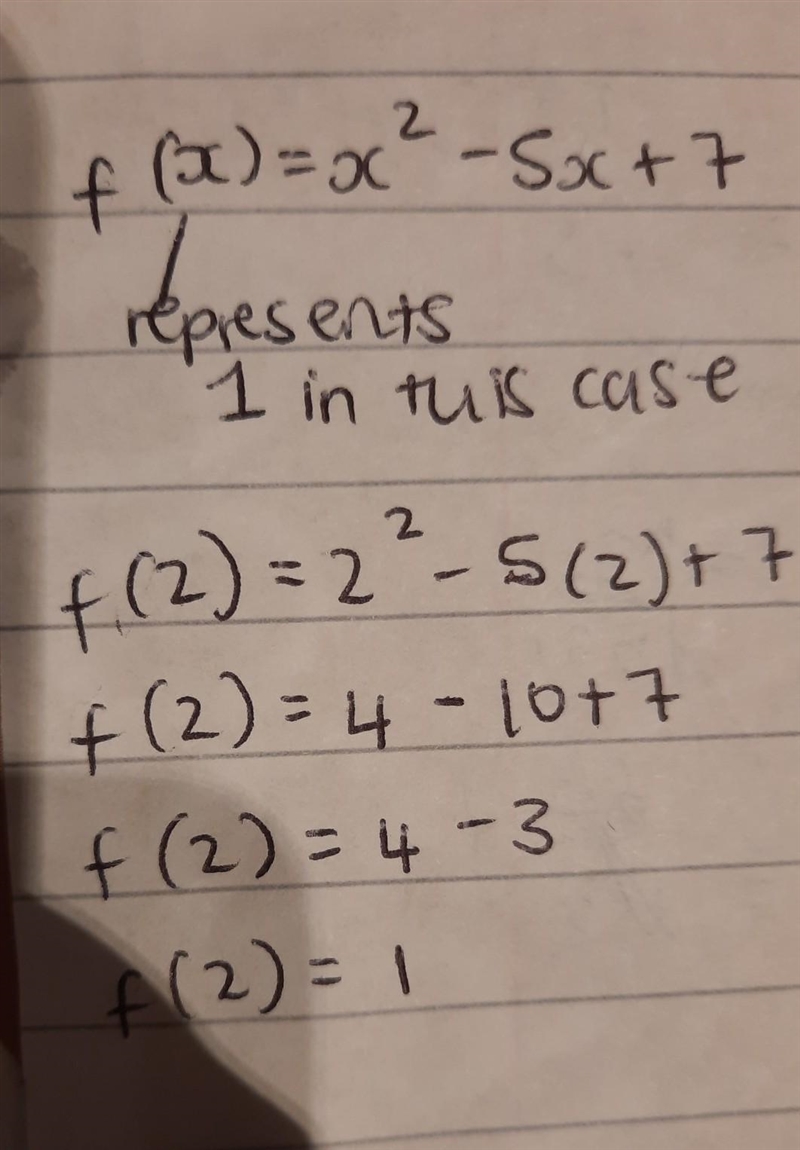 f(x) = x² - 5x + 7
represents
1 in this case
f(2) = 2² - 5(2) + 7
f(2) = 4 - 10 + 7
f(2) = 4 - 3
f(2) = 1